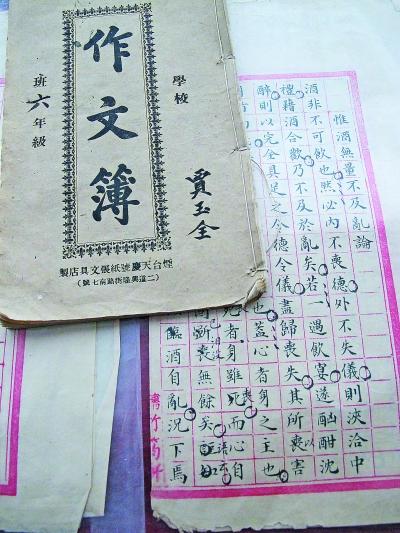 學校
賈玉全
作文簿
班六年級
煙台天慶號紙張文具店製
(二道興隆街路南七號)
惟酒無量不及亂論
酒非不可飲也然必內不喪德外不失儀則浹洽中
禮藉酒合歡乃不及於亂矣若一過飲宴遂酗酣沈
醉則以完全具足之令德令儀盡歸喪失其所喪害
也蓋心者身之主也
死者身雖死而心自
斷喪無餘矣
臨酒自亂況下焉